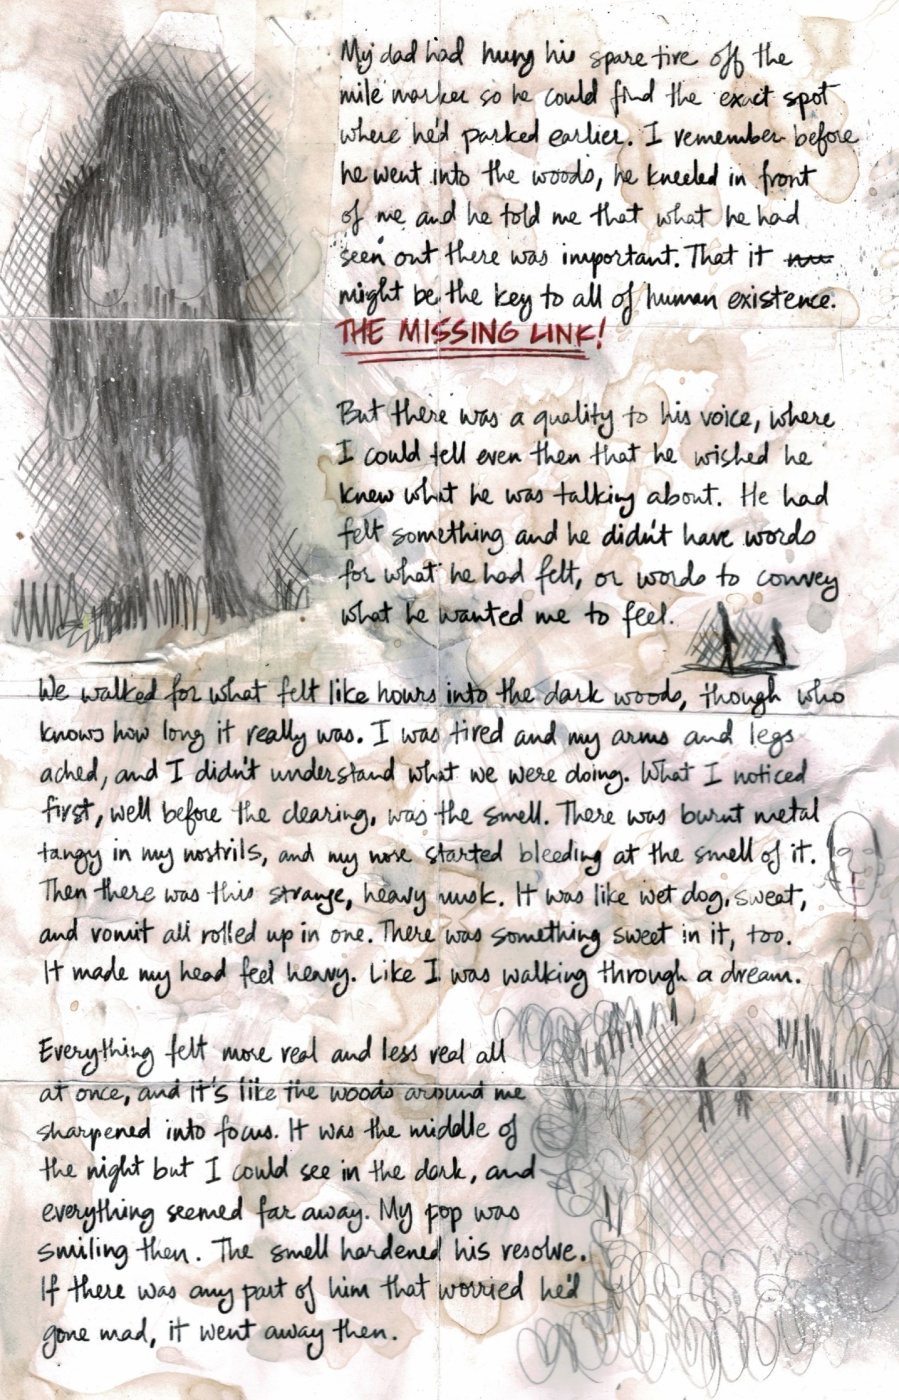 My dad had hung his spare tire off the
mile marker so he could find the exact spot
where he'd parked earlier. I remember before
he went into the woods, he kneeled in front
of me and he told me that what he had
seen out there was important. That it
might be the key to all of human existence.
THE MISSING LINK!
But there was a quality to his voice, where
I could tell even then that he wished he
knew what he was talking about. He had
felt something and he didn't have words
for what he had felt, or words to convey
what he wanted me to feel.
We walked for what felt like hours into the dark woods, though who
knows how long it really was. I was tired and my arms and legs
ached, and I didn't understand what we were doing. What I noticed
first, well before the clearing, was the smell. There was burnt metal
tangy in my nostrils, and my nose started bleeding at the smell of it.
Then there was this strange, heavy musk. It was like wet dog, sweat,
and vomit all rolled up in one. There was something sweet in it, too.
It made my head feel heavy. Like I was walking through a dream.
Everything felt more real and less real all
at once, and it's like the woods around me
sharpened into focus. It was the middle of
the night but I could see in the dark, and
everything seemed far away. My pop was
smiling then. The smell hardened his resolve.
If there was any part of him that worried he'd
gone mad, it went away then.